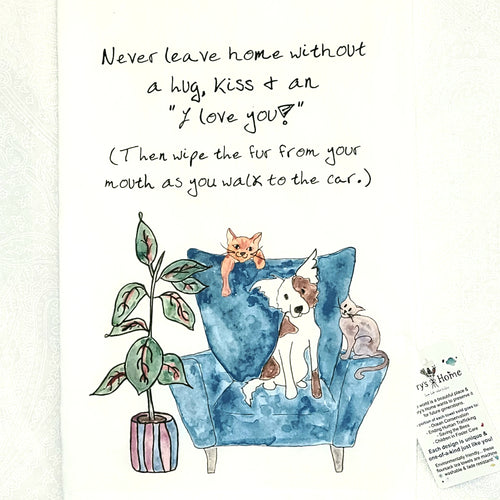 Never leave home without
a hug, kiss & an
"I love you!"
(Then wipe the fur from your
mouth as you walk to the car.)
Home
world is a beautiful place &
Home wants to preserve it
for future generations.
portion of each towel sold goes to:
- Ocean Conservation
- Ending Human Trafficking
- Saving the Bees
- Children in Foster Care
Each design is unique &
one-of-a-kind just like you!
Environmentally friendly... these
floursack tea towels are machine
washable & fade resistant!